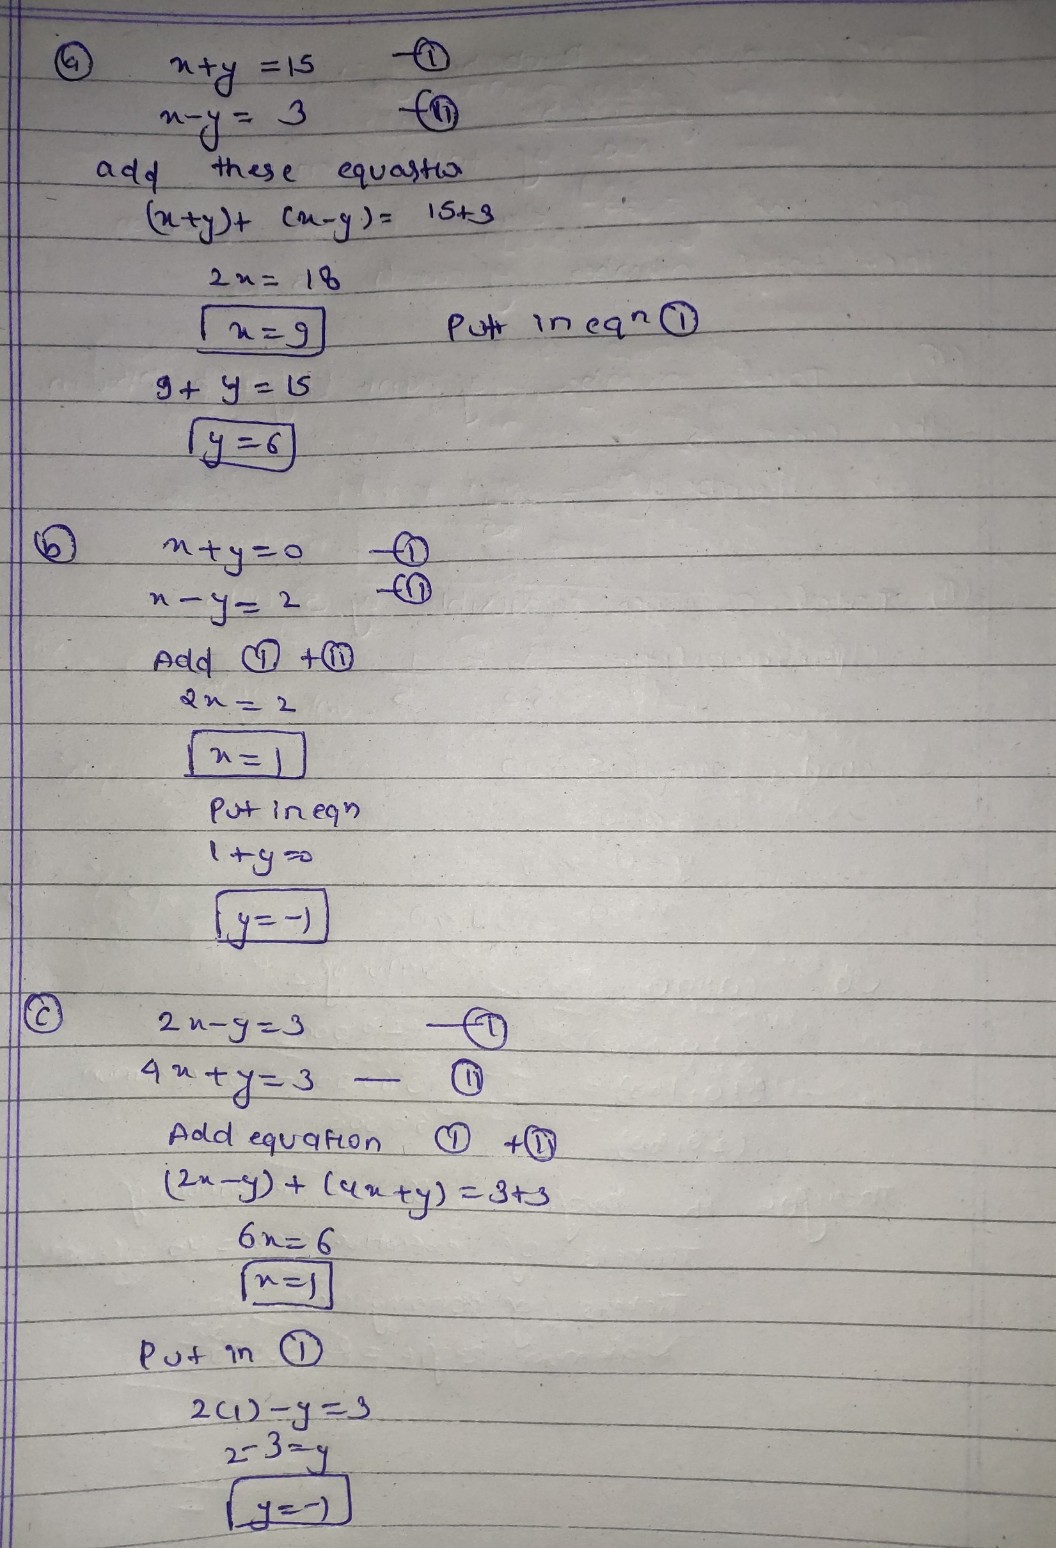 (a) x+y = 15 — (I)
x-y = 3 — (II)
add these
(x+y)+ (x-y)= 15+3
2x = 18
x=9 Put in eqn (I)
9+ y = 15
y=6
(b) x+y=0 — (I)
x-y= 2 — (II)
Add (I) + (II)
2x = 2
x=1
Put in eqn
1+y=0
y=-1
(c) 2x-y=3 — (I)
4x+y=3 — (II)
Add equation (I) + (II)
(2x-y) + (4x+y) = 3+3
6x=6
x=1
Put in (I)
2(1)-y=3
2-3=y
y=-1